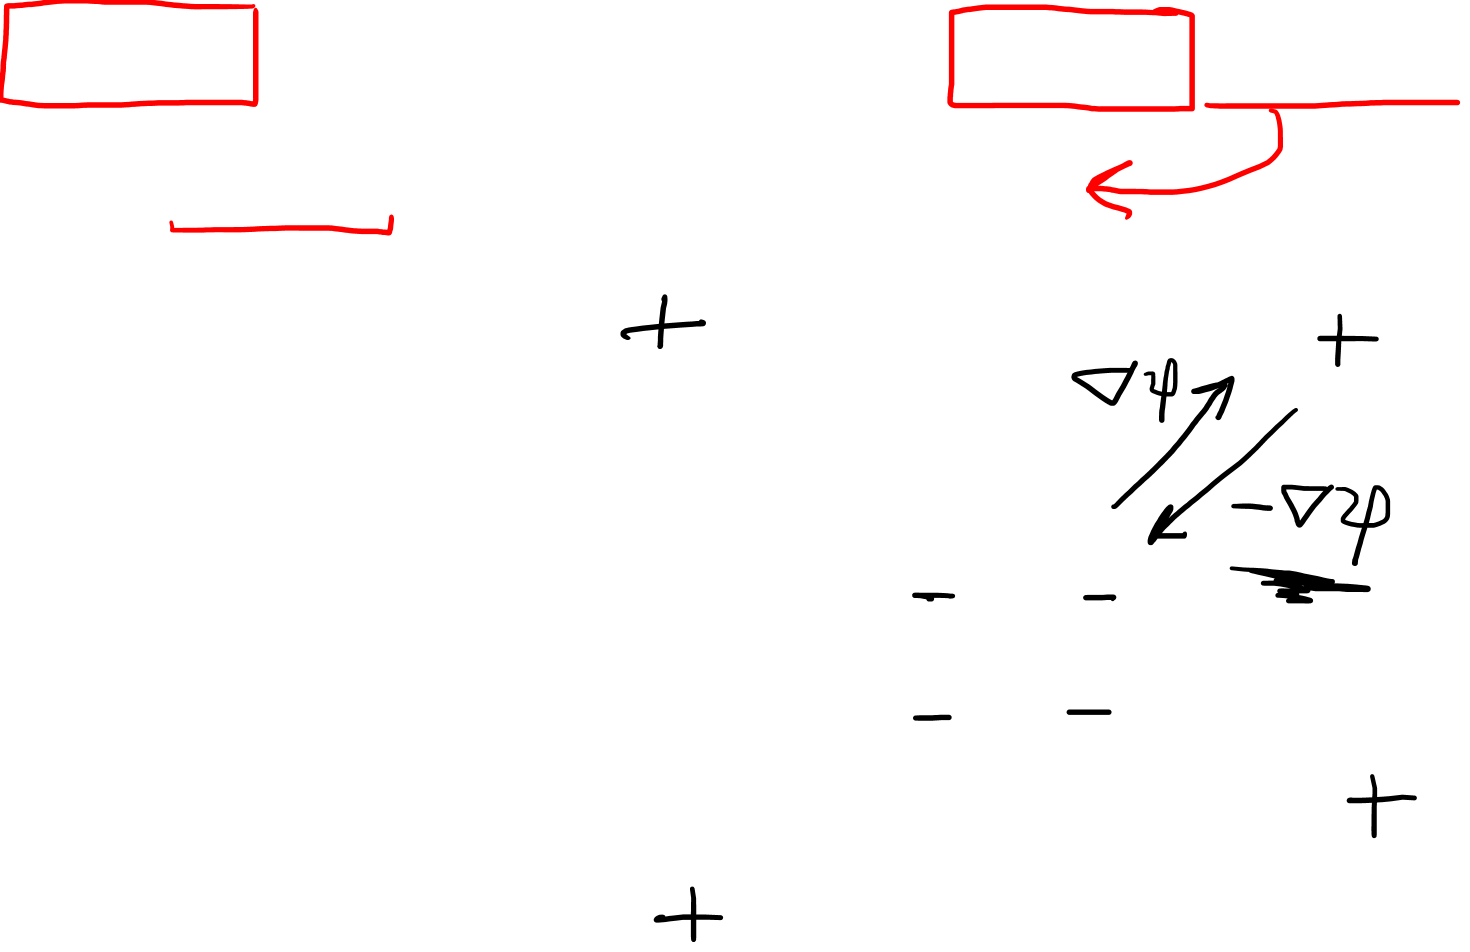 + +
∇φ
-∇φ
- -
- -
+
+